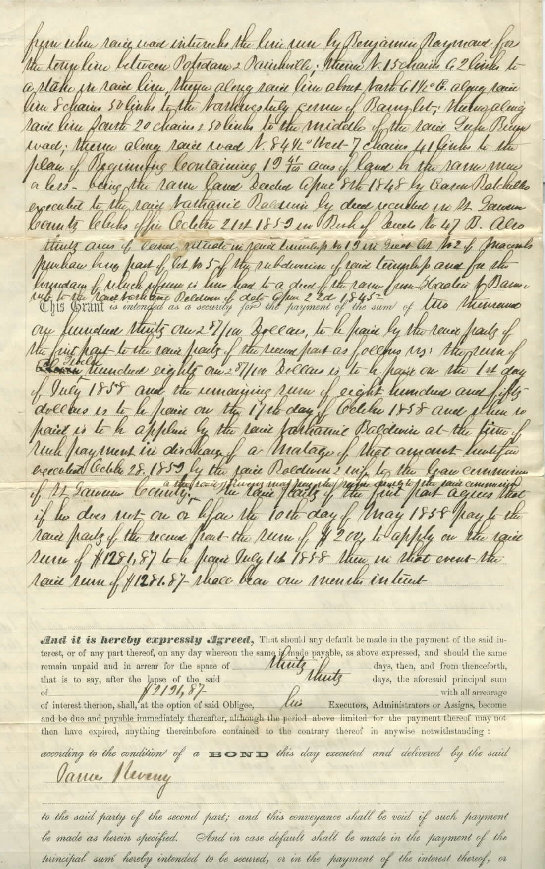 from where said road intersects the line run by Benjamin Raymond for
the town line between Potsdam & Parishville; thence N. 15 chains 62 links to
a stake in said line, thence along said line about North 61½° E. along said
line 8 chains 50 links to the corner of lot; thence along
said line South 20 chains & 50 links to the middle of the said
road; thence along said road N. 84½° West 7 chains 41 links to the
place of Beginning Containing 19 acres of land be the same more
or less - being the same land Deeded April 8th 1848 by
executed to the said Nathaniel Baldwin by deed recorded in St. Lawrence
County Clerks office October 21st 1859 in Book of Deeds No 47 B. Also
thirty acres of land situate in said township No 13 in Great lot No 2 of Macombs
purchase being part of lot No 5 of the subdivision of said township and for the
boundary of which reference is here had to a deed of the same from
to the said Nathaniel Baldwin of date April 22d 1845
This Grant is intended as a security for the payment of the sum of two thousand
one hundred thirty one 87/100 Dollars, to be paid by the said party of
the first part to the said party of the second part as follows viz: the sum of
twelve hundred eighty one 87/100 Dollars is to be paid on the 1st day
of July 1858 and the remaining sum of eight hundred and fifty
dollars is to be paid on the 17th day of October 1858 and when so
paid is to be applied by the said Nathaniel Baldwin at the time of
such payment in discharge of a Mortgage of that amount
executed October 28, 1859 by the said Baldwin & wife to the Loan commissioners
of St Lawrence County. The said party of the first part agrees that
if he does not on or before the 10th day of May 1858 pay to the
said party of the second part the sum of $200, to apply on the said
sum of $1281,87 to be paid July 1st 1858 then in that event the
said sum of $1281.87 shall bear one months interest
And it is hereby expressly Agreed, That should any default be made in the payment of the said in-
terest, or of any part thereof, on any day whereon the same is made payable, as above expressed, and should the same
remain unpaid and in arrear for the space of thirty days, then, and from thenceforth,
that is to say, after the lapse of the said thirty days, the aforesaid principal sum
of $2131,87 with all arrearage
of interest thereon, shall, at the option of said Obligee, his Executors, Administrators or Assigns, become
and be due and payable immediately thereafter, although the period above limited for the payment thereof may not
then have expired, anything thereinbefore contained to the contrary thereof in anywise notwithstanding:
according to the condition of a BOND this day executed and delivered by the said
James
to the said party of the second part; and this conveyance shall be void if such payment
be made as herein specified. And in case default shall be made in the payment of the
principal sum hereby intended to be secured, or in the payment of the interest thereof, or